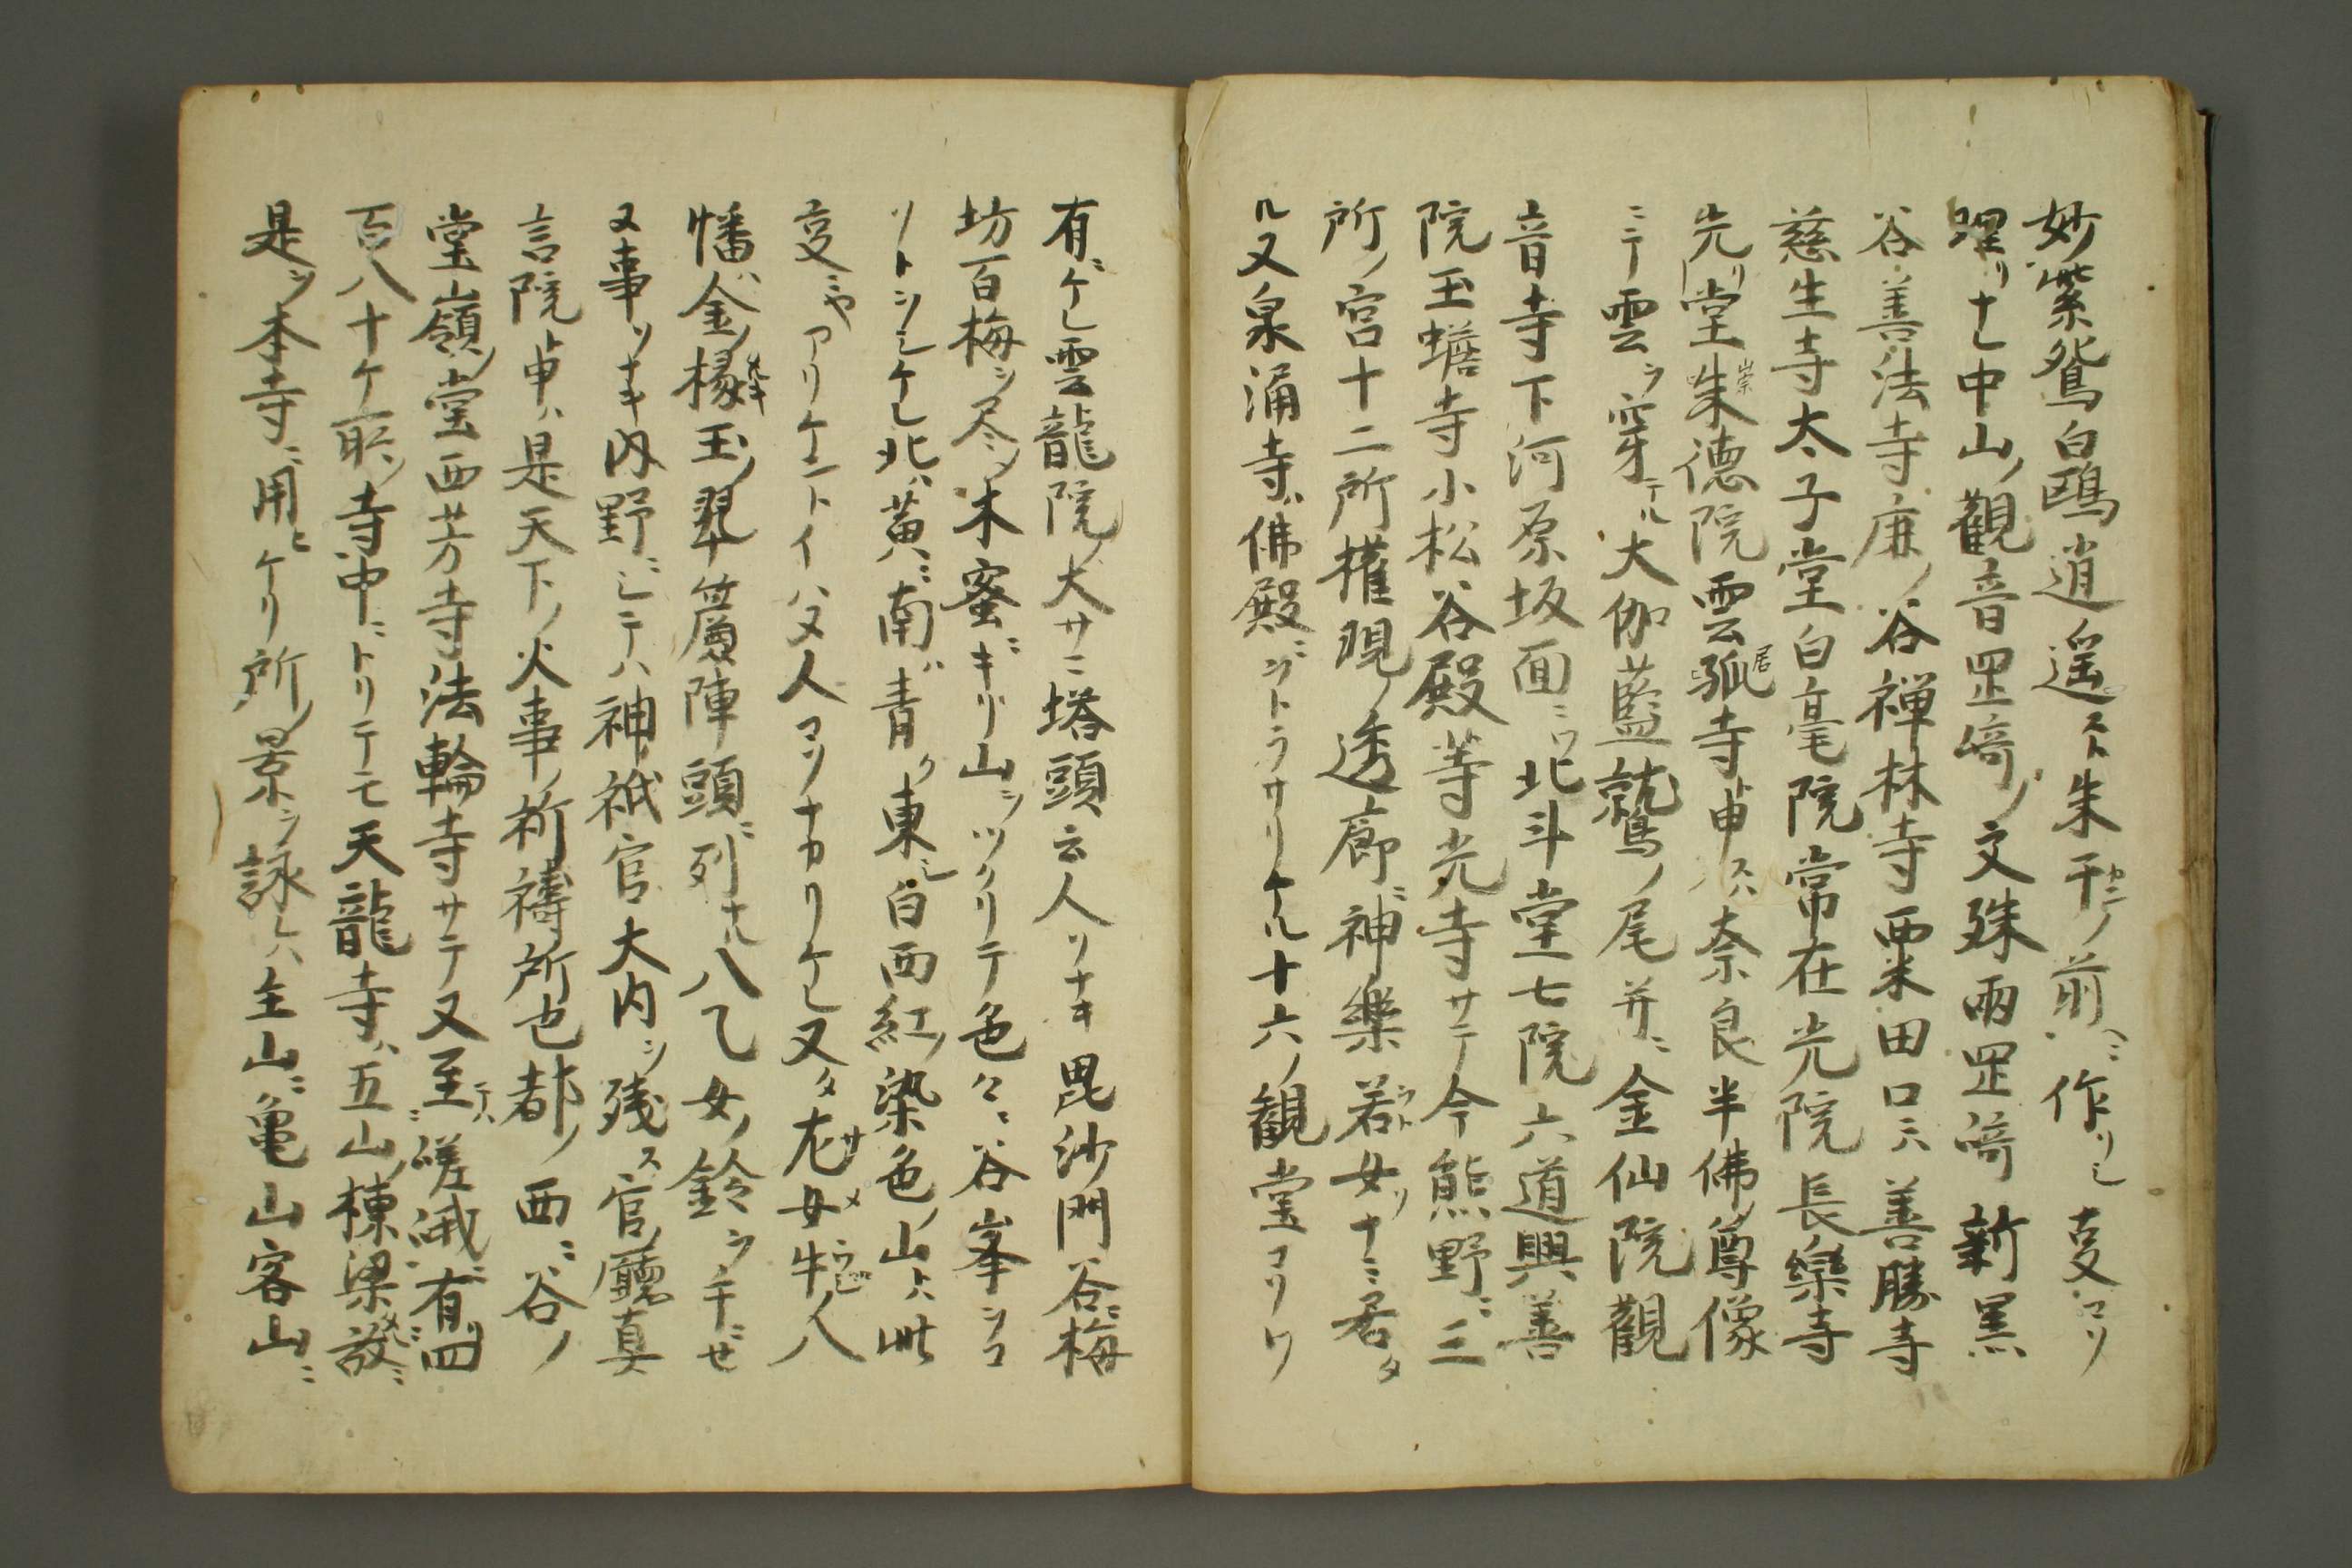 妙紫鴛白鴎逍遥スト朱干ノ前ニ作リシ
埋リナレ中山ノ觀音罡﨑ノ文殊両罡﨑新黒
谷善法寺鹿ノ谷禅林寺粟田口ニハ善勝寺
慈生寺太子堂白毫院常在光院長樂寺
先リ堂朱徳院雲孤寺申スハ奈良半佛ノ尊像
ニテ雲ヲ穿テル大伽藍鷲ノ尾并ニ金仙院觀
音寺下河原坂面ニハ北斗堂七院六道興善
院玉蟠寺小松谷殿等光寺サテ今熊野ニ三
所ノ宮十二所權現ノ透廊ニ神樂若女リナミ君タ
ル又泉涌寺ガ佛殿ニシトラサリケル十六ノ観堂コリワ
有ゲレ雲龍院ノ大サニ塔頭云人リナキ毘沙門谷ニ梅
坊百梅ヲ尽シ木蜜ギリ山ヲツクリテ色々ニ谷峯ヲコ
ツトンシケレ北ハ黄ニ南ハ青ク東シ白西紅ノ染色ノ山ト此
ニヤアリケントイハヌ人コソナカリケレ又タ尨女牛人
幡ハ金ノ椽玉ノ翠簾陣頭ニ列ナル八乙女ノ鈴ヲ
又事ソナキ内野ニシテハ神祇官大内ヲ残ス官廳真
言院ト申ハ是天下ノ火事ノ祈禱所也都ノ西ニ谷ノ
堂嶺ノ堂西芳寺法輪寺サテ又至テハ嵯峨ニ有四
百八十ケ所ノ寺中ニトリテモ天龍寺ハ五山ノ棟梁
是ヲ本寺ニ用ヒケリ所ノ景ヲ詠レハ主山ニ亀山客山ニ